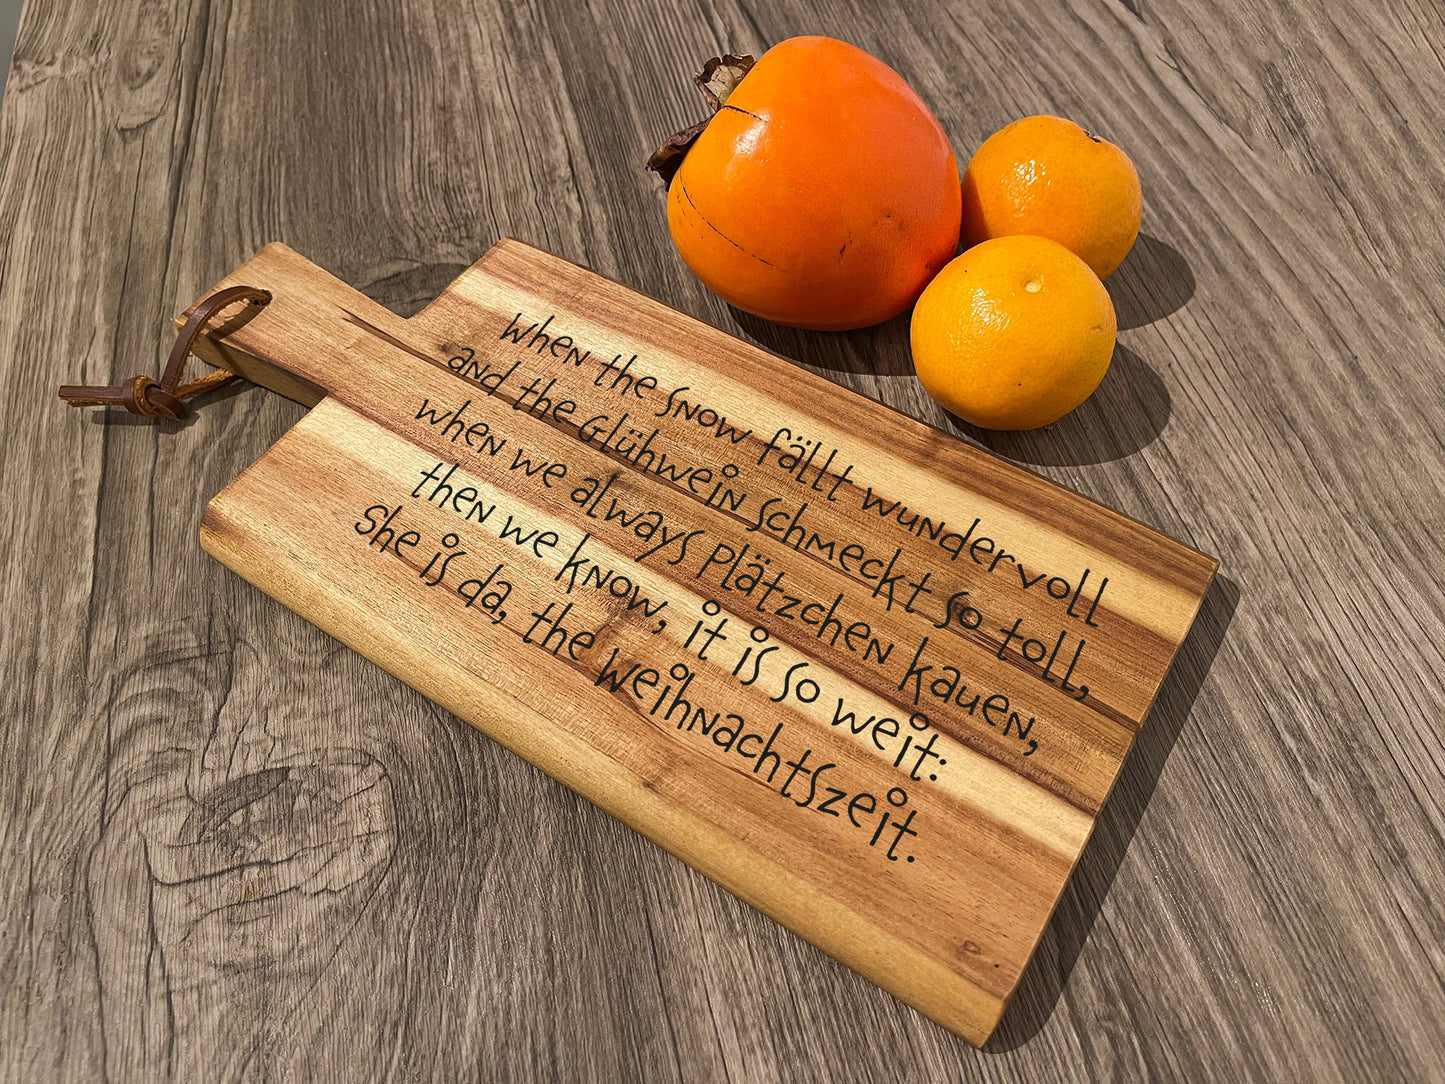 When the snow fällt wundervoll
and the Glühwein schmeckt so toll,
when we always Plätzchen kauen,
then we know, it is so weit:
She is da, the Weihnachtszeit.